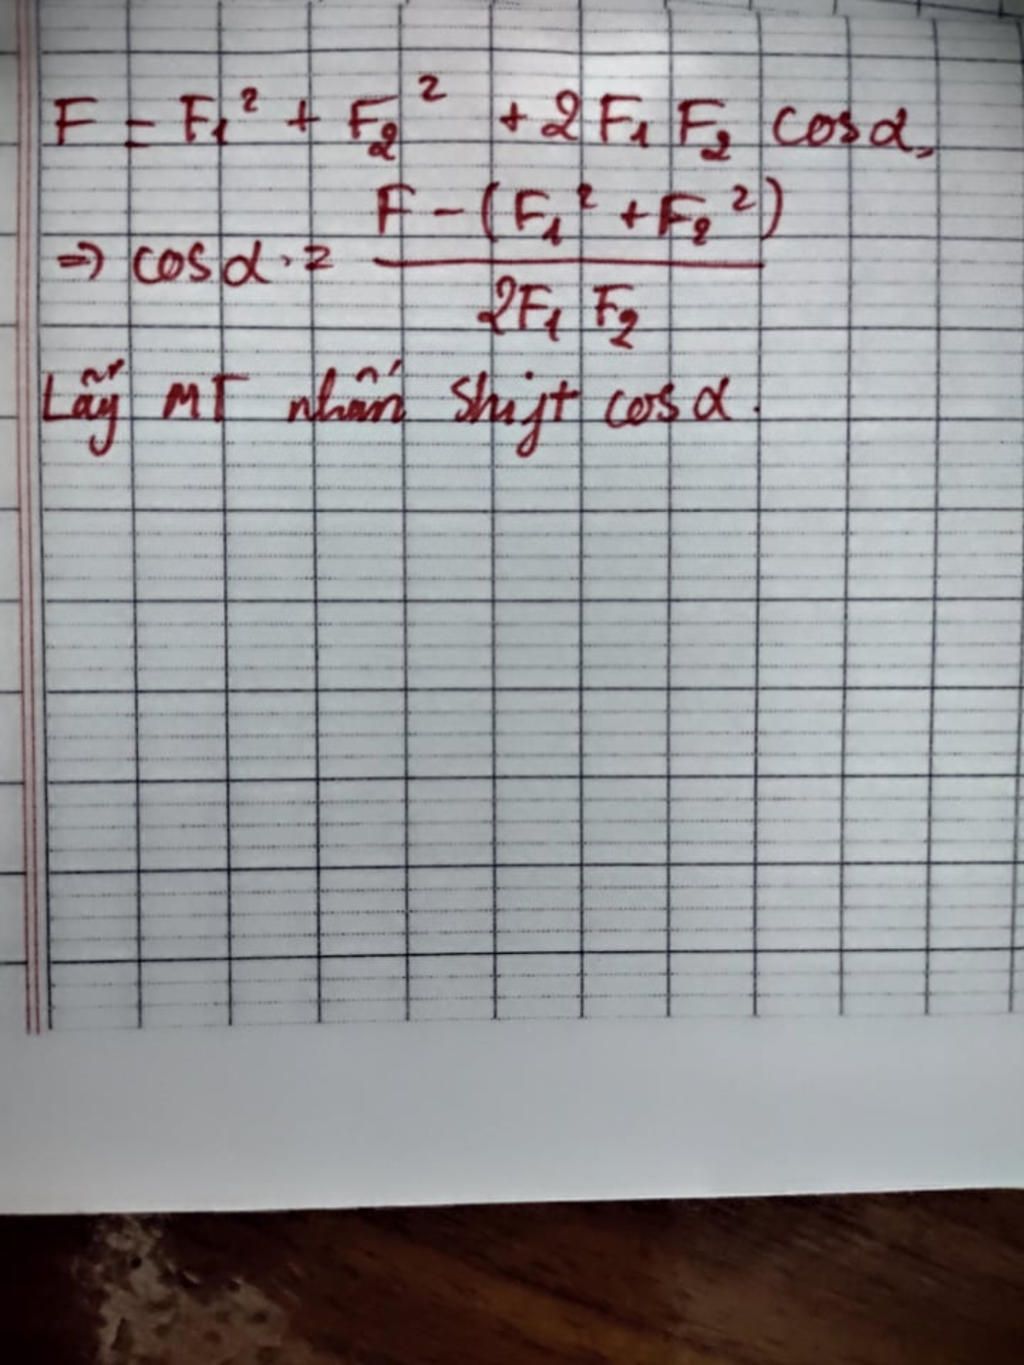 F = F₁² + F₂² + 2F₁ F₂ cosα,
F - (F₁² + F₂²)
⇒ cosα · =
2F₁ F₂
Lấy MT nhấn Shift cosα.